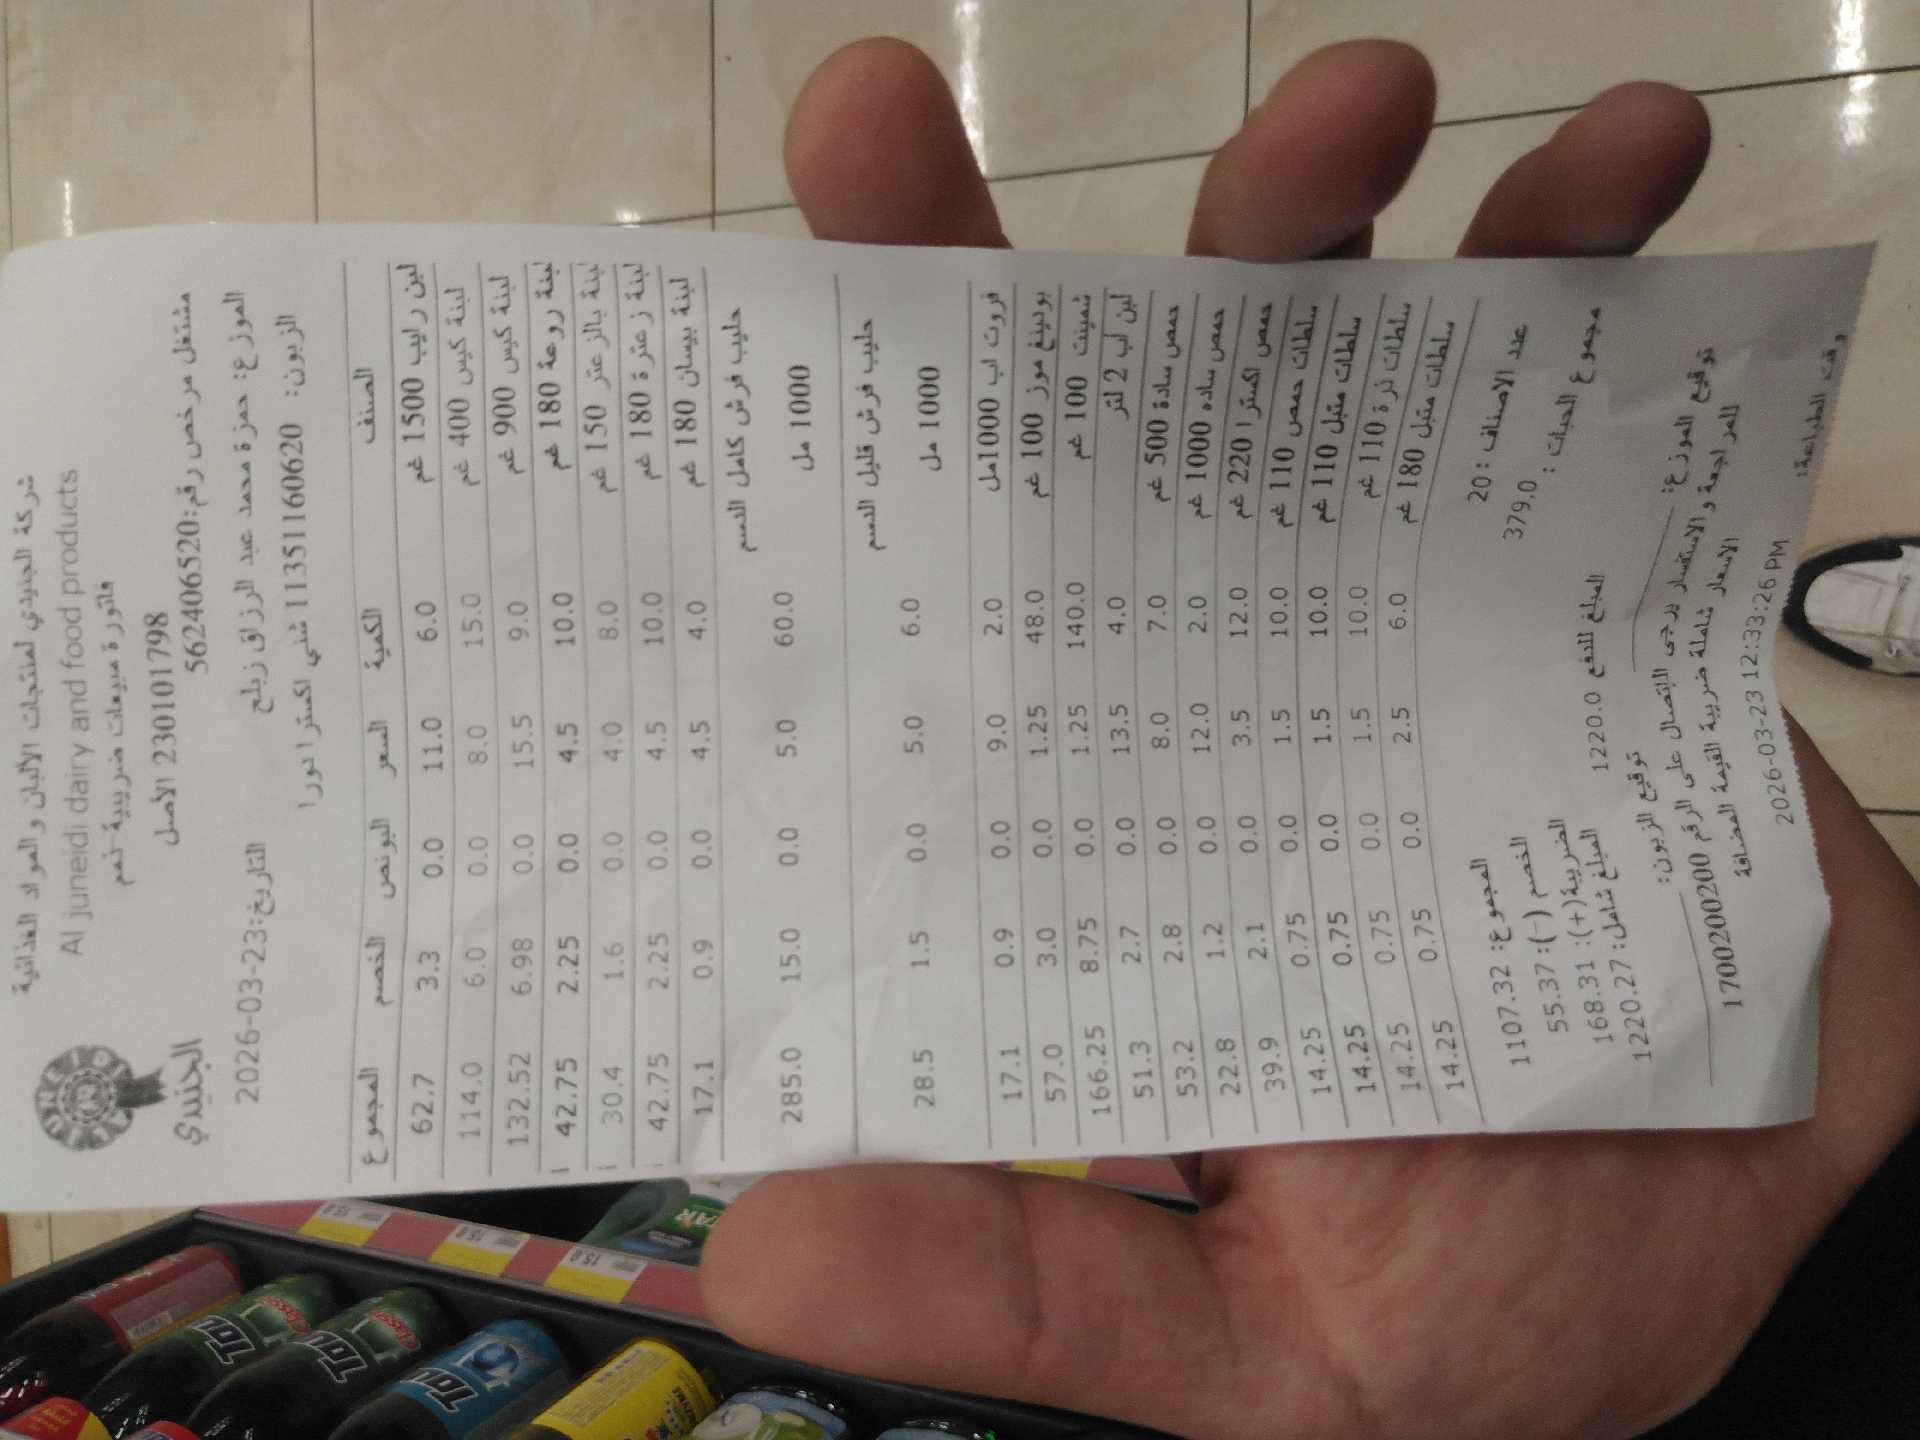 شركة الجنيدي لمنتجات الألبان والمواد الغذائية
Al juneidi dairy and food products
فاتورة مبيعات ضريبية-ذمم
الجنيدي
230101798 الأصل
مشتغل مرخص رقم:562406520
الموزع: حمزة محمد عبد الرزاق زبلح
التاريخ:2026-03-23
الزبون: 11351160620 شني اكسترا دورا
الصنف الكمية السعر البونص الخصم المجموع
لبن رايب 1500 غم 6.0 11.0 0.0 3.3 62.7
لبنة كيس 400 غم 15.0 8.0 0.0 6.0 114.0
لبنة كيس 900 غم 9.0 15.5 0.0 6.98 132.52
لبنة روعة 180 غم 10.0 4.5 0.0 2.25 42.75
لبنة بالزعتر 150 غم 8.0 4.0 0.0 1.6 30.4
لبنة زعترة 180 غم 10.0 4.5 0.0 2.25 42.75
لبنة بيسان 180 غم 4.0 4.5 0.0 0.9 17.1
حليب فرش كامل الدسم
1000 مل 60.0 5.0 0.0 15.0 285.0
حليب فرش قليل الدسم
1000 مل 6.0 5.0 0.0 1.5 28.5
فروت اب 1000مل 2.0 9.0 0.0 0.9 17.1
بودينغ موز 100 غم 48.0 1.25 0.0 3.0 57.0
شمينت 100 غم 140.0 1.25 0.0 8.75 166.25
لبن اب 2 لتر 4.0 13.5 0.0 2.7 51.3
حمص سادة 500 غم 7.0 8.0 0.0 2.8 53.2
حمص ساده 1000 غم 2.0 12.0 0.0 1.2 22.8
حمص اكسترا 220 غم 12.0 3.5 0.0 2.1 39.9
سلطات حمص 110 غم 10.0 1.5 0.0 0.75 14.25
سلطات متبل 110 غم 10.0 1.5 0.0 0.75 14.25
سلطات ذرة 110 غم 10.0 1.5 0.0 0.75 14.25
سلطات متبل 180 غم 6.0 2.5 0.0 0.75 14.25
عدد الاصناف :20
المجموع: 1107.32
مجموع الحبات : 379.0
الخصم (-): 55.37
الضريبة(+): 168.31
المبلغ للدفع 1220.0
المبلغ شامل: 1220.27
توقيع الموزع:
توقيع الزبون:
للمراجعة والاستفسار يرجى الاتصال على الرقم 1700200200
الاسعار شاملة ضريبة القيمة المضافة
وقت الطباعة:
2026-03-23 12:33:26 PM
15.0
15.0
15.0
STAR
Classic
Classic